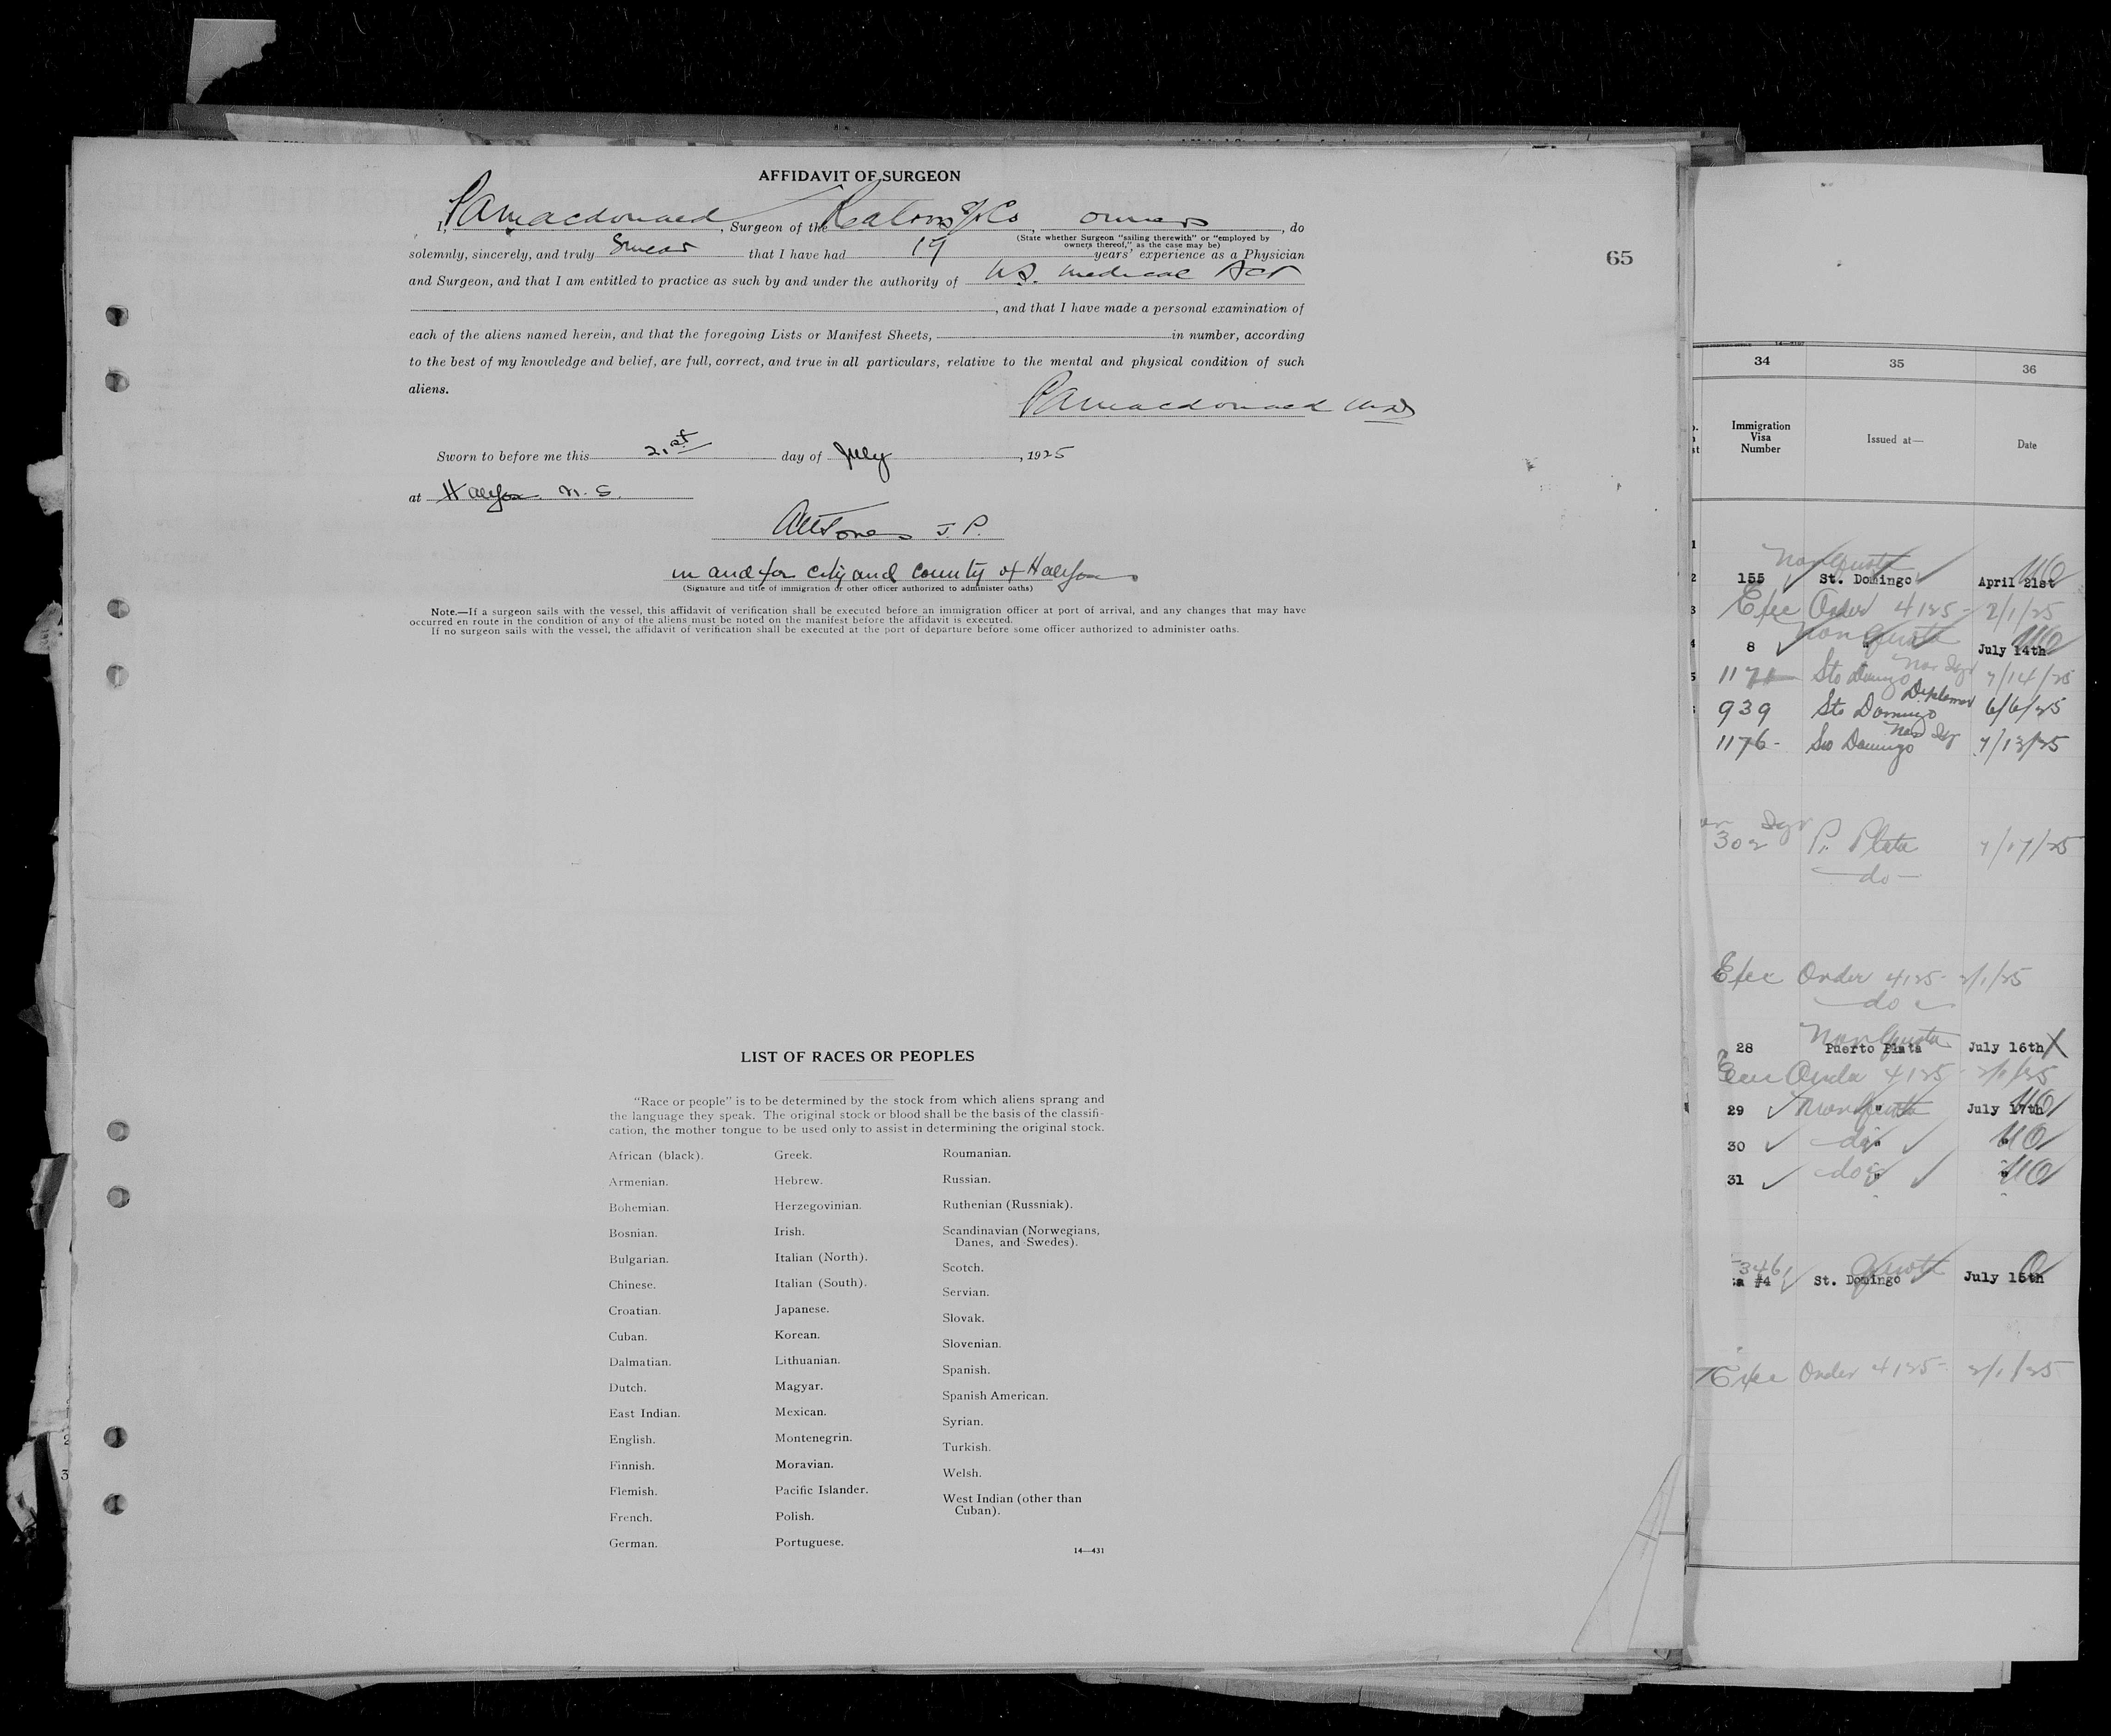 AFFIDAVIT OF SURGEON
I, P A Macdonald, Surgeon of the Co, owners, do
(State whether Surgeon "sailing therewith" or "employed by
owners thereof," as the case may be)
solemnly, sincerely, and truly Swear that I have had years' experience as a Physician
and Surgeon, and that I am entitled to practice as such by and under the authority of N.S. Medical Act
, and that I have made a personal examination of
each of the aliens named herein, and that the foregoing Lists or Manifest Sheets, in number, according
to the best of my knowledge and belief, are full, correct, and true in all particulars, relative to the mental and physical condition of such
aliens.
P A Macdonald M.D
Sworn to before me this 21st day of July, 1925
at Halifax N.S.
Jones J.P.
in and for City and County of Halifax
(Signature and title of immigration or other officer authorized to administer oaths)
Note.—If a surgeon sails with the vessel, this affidavit of verification shall be executed before an immigration officer at port of arrival, and any changes that may have
occurred en route in the condition of any of the aliens must be noted on the manifest before the affidavit is executed.
If no surgeon sails with the vessel, the affidavit of verification shall be executed at the port of departure before some officer authorized to administer oaths.
65
LIST OF RACES OR PEOPLES
"Race or people" is to be determined by the stock from which aliens sprang and
the language they speak. The original stock or blood shall be the basis of the classifi-
cation, the mother tongue to be used only to assist in determining the original stock.
African (black).
Armenian.
Bohemian.
Bosnian.
Bulgarian.
Chinese.
Croatian.
Cuban.
Dalmatian.
Dutch.
East Indian.
English.
Finnish.
Flemish.
French.
German.
Greek.
Hebrew.
Herzegovinian.
Irish.
Italian (North).
Italian (South).
Japanese.
Korean.
Lithuanian.
Magyar.
Mexican.
Montenegrin.
Moravian.
Pacific Islander.
Polish.
Portuguese.
Roumanian.
Russian.
Ruthenian (Russniak).
Scandinavian (Norwegians,
Danes, and Swedes).
Scotch.
Servian.
Slovak.
Slovenian.
Spanish.
Spanish American.
Syrian.
Turkish.
Welsh.
West Indian (other than
Cuban).
14—431
34 35 36
Immigration
Visa
Number
Issued at—
Date
Non Quota
155 St. Domingo April 21st
Exec Order 4125 - 2/1/25
Non Quota
8 " July 14th
1171 Sto Domingo 7/14/25
Diplomat
939 Sto Domingo 6/6/25
1176 - Sto Domingo 7/13/25
302 P. Plata 7/17/25
—do—
Exec Order 4125 - 2/1/25
—do
Non Quota
28 Puerto Plata July 16th
Exec Order 4125 - 2/1/25
29 Non Quota " July 17th
30 do " "
31 do " "
346
#4 St. Domingo Quota July 15th
Exec Order 4125 - 2/1/25